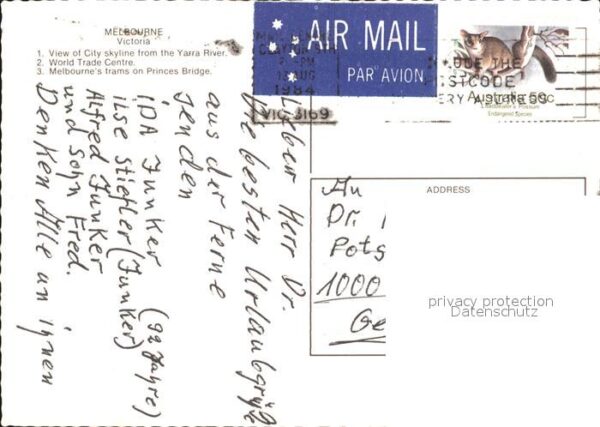 MELBOURNE
Victoria
1. View of City skyline from the Yarra River.
2. World Trade Centre.
3. Melbourne's trams on Princes Bridge.
AIR MAIL
PAR AVION
AUG
1984
VIC 3169
USE THE
POSTCODE
EVERY
Australia
Endangered Species
Lieber Herr Dr.
Die besten Urlaubsgrüße
aus der Ferne
senden
IDA Junker (92 Jahre)
ilse Stiefler (Junker)
Alfred Junker
und Sohn Fred.
Denken Alle an ihnen
ADDRESS
An
Dr.
Pots
1000
Ge
privacy protection
Datenschutz